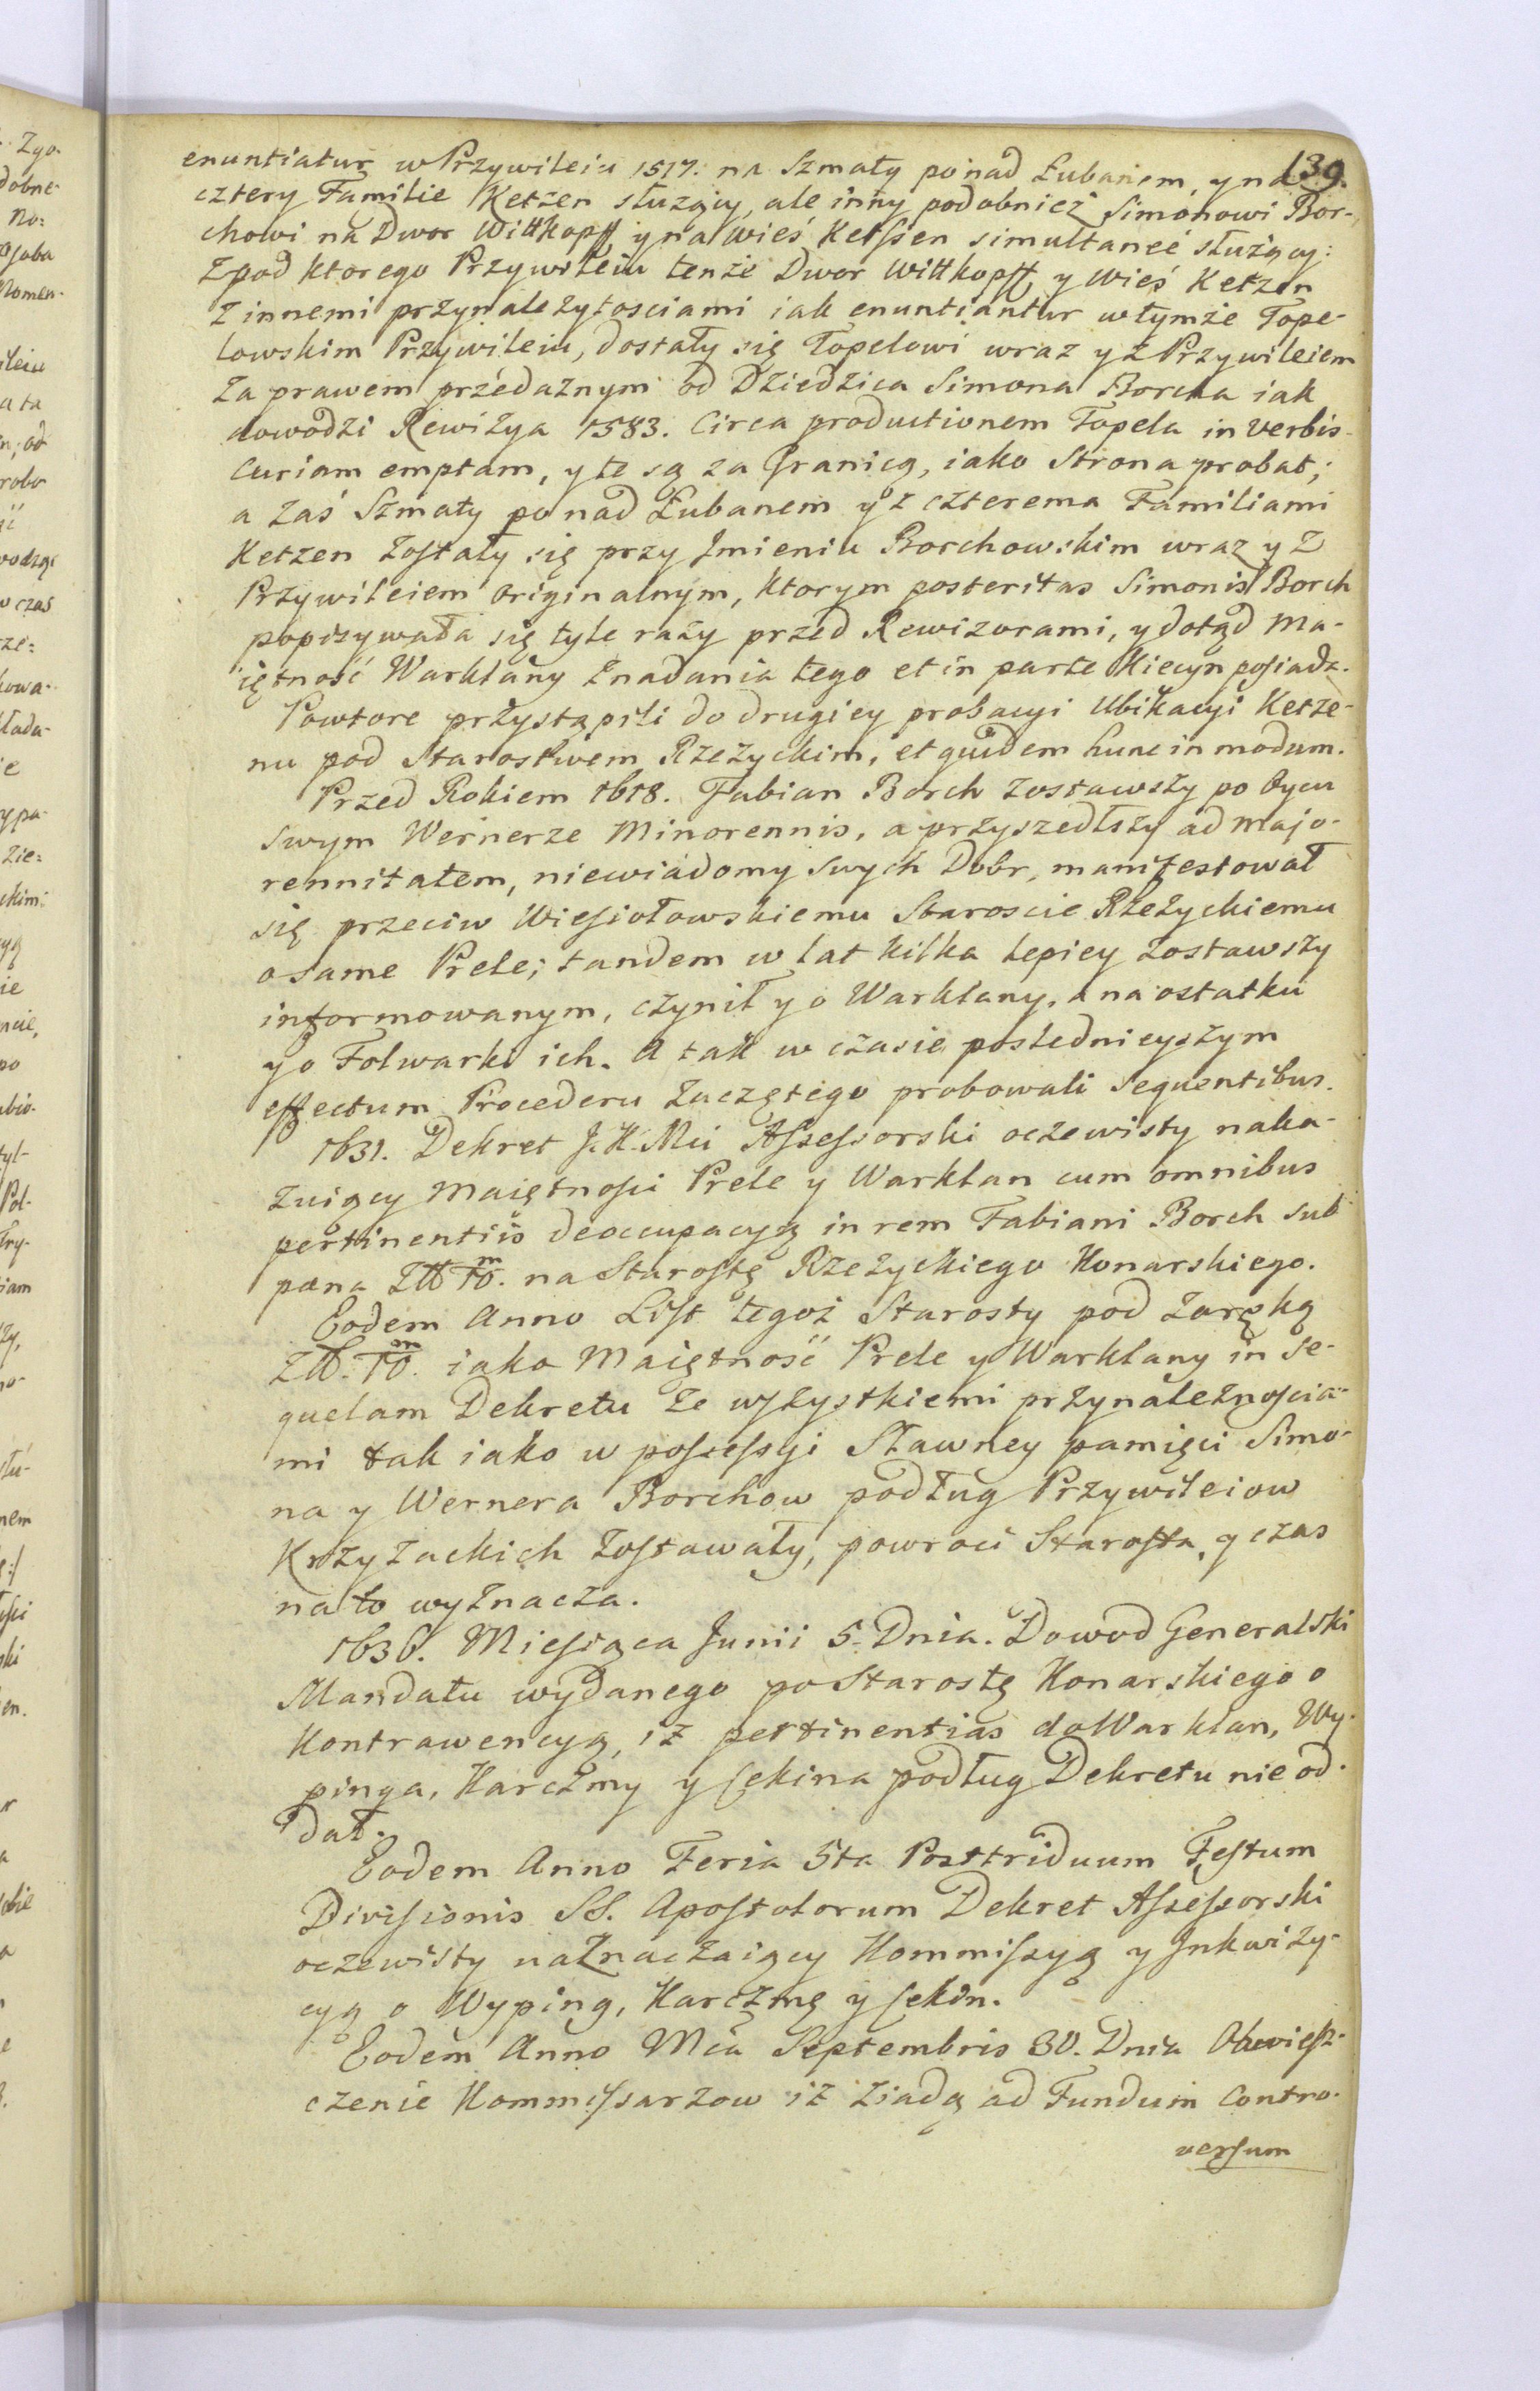 139.
enuntiatur w Przywileiu 1517. na Szmaty ponad Łubanem, y na
cztery Familie Ketzen słuzący, ale inny podobnież Simonowi Bor-
chowi na Dwor Wittkopff y na wieś Ketſsen simultaneé służący:
Zpod ktorego Przywileiu tenże Dwor Wittkopff y wieś Ketzen
z innemi przynależytosciami iak enuntiantur w tymże Tope-
lowskim Przywileiu, dostały się Topelowi wraz y z Przywileiem
za prawem przedażnym od Dziedzica Simona Borcha iak
dowodzi Rewizya 1583. Circa productionem Topela in verbis
Curiam emptam, y te są za Granicą, iako Strona probat;
a zaś Szmaty ponad Łubanem y z czterema Familiami
Ketzen zoſtały się przy Jmieniu Borchowskim wraz y z
Przywileiem originalnym, ktorym posteritas Simonis Borch
popisywała się tyle razy przed Rewizorami, y dotąd Ma-
iętność Warklany znadania tego et in parte Kiecyn poſiada.
Powtore przystąpili do drugiey probacyi Ubikacyi Ketze-
nu pod Starostwem Rzeżyckim, et quidem hunc in modum.
Przed Rokiem 1618. Fabian Borch zostawszy po Oycu
swym Wernerze Minorennis, a przyszedłszy ad majo-
rennitatem, niewiadomy swych Dobr, manifestował
się przeciw Wieſiołowskiemu Staroscie Rzeżyckiemu
o same Prele; tandem w lat kilka lepiey zostawszy
informowanym, czynił y o Warklany, a na ostatku
y o Folwarki ich. A tak w czasie poslednieyszym
effectum Procederu zaczętego probowali sequentibus.
1631. Dekret J. K. Mci Aſseſsorski oczewisty naka-
zuiący Maiętnoſci Prele y Warklan cum omnibus
pertinentiis deoccupacyą in rem Fabiani Borch sub
pæna Złł 10.m na Staroſtę Rzeżyckiego Konarskiego.
Eodem Anno Liſt tegoż Starosty pod zaręką
Złł. 10.m iako Maiętność Prele y Warklany in se-
quelam Dekretu ze wſzystkiemi przynależnoſcia-
mi tak iako w poſseſsyi Sławney pamięci Simo-
na y Wernera Borchow podług Przywileiow
Krzyzackich zoſtawały, powroci Staroſta, y czas
na to wyznacza.
1636. Mieſiąca Junii 5. Dnia. Dowod Generalski
Mandatu wydanego po Starostę Konarskiego o
Kontrawencyą, iż pertinentias do Warklan, Wy-
pinga, Karczmy y ſekina podług Dekretu nie od-
dał.
Eodem Anno Feria 5ta Posttriduum Feſtum
Diviſionis SS. Apoſtolorum Dekret Aſseſsorski
oczewisty naznaczaiący Kommiſsyą y Jnkwizy-
cyą o Wyping, Karczmę y ſekin.
Eodem Anno Mca Septembris 30. Dnia Obwieſz-
czenie Kommiſsarzow iż ziadą ad Fundum Contro-
verſum